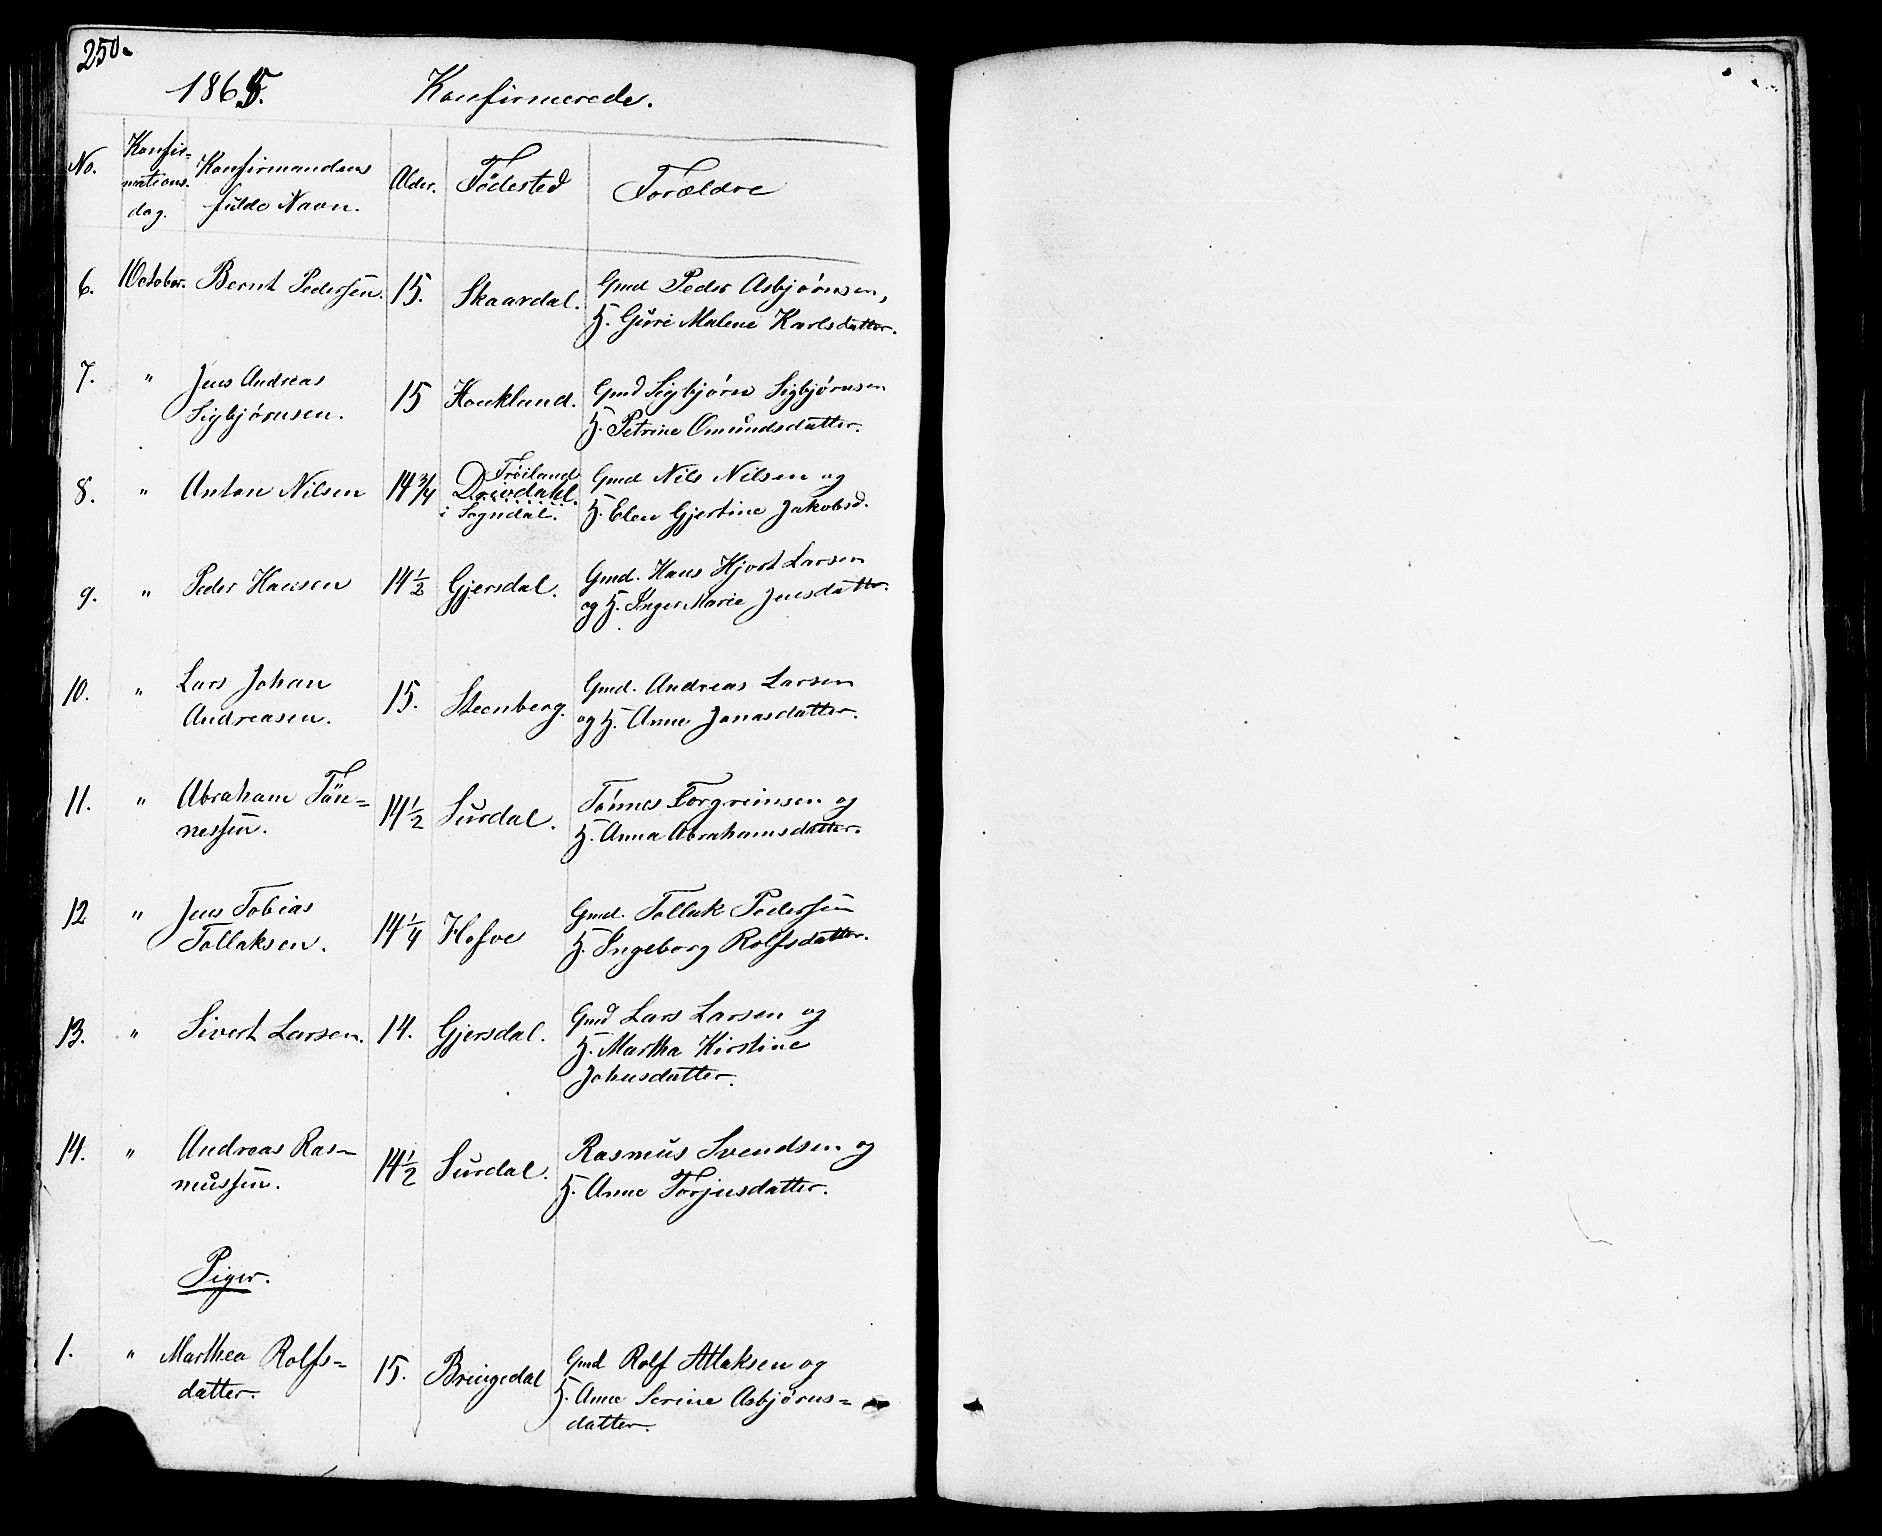 250.
1865. Konfirmerede.
No. Konfir=
mations.
dag. Konfirmandens
fulde Navn. Alder. Fødested Forældre
6. 1 October. Bernt Pedersen. 15. Skaardal. Gmd Peder Asbjørnsen,
H. Guri Malene Karlsdatter.
7. " Jens Andreas
Sigbjørnsen. 15 Haukland. Gmd Sigbjørn Sigbjørnsen
H. Petrine Omundsdatter.
8. " Anton Nilsen 14 3/4 Trøiland
Drivdahl.
i Sogndal. Gmd Nils Nilsen og
H. Elen Gjertine Jakobsd.
9. " Peder Hansen 14 1/2 Gjersdal. Gmd. Hans Hjort Larsen
og H. Inger Marie Jensdatter.
10. " Lars Johan
Andreasen. 15. Steenberg. Gmd. Andreas Larsen
og H. Anne Jonasdatter.
11. " Abraham Tön=
nessen. 14 1/2 Surdal. Tönnes Torgrimsen og
H. Anna Abrahamsdatter.
12 " Jens Tobias
Tollaksen. 14 1/4 Hofve Gmd. Tollak Pedersen
H. Ingeborg Rolfsdatter.
13. " Sivert Larsen. 14. Gjersdal. Gmd Lars Larsen og
H. Martha Kirstine
Johnsdatter.
14. " Andreas Ras=
mussen. 14 1/2 Surdal. Rasmus Svendsen og
H. Anne Torjusdatter.
Piger.
1. " Marthea Rolfs=
datter. 15. Bringedal Gmd Rolf Atlaksen og
H. Anne Serine Asbjørns=
datter.